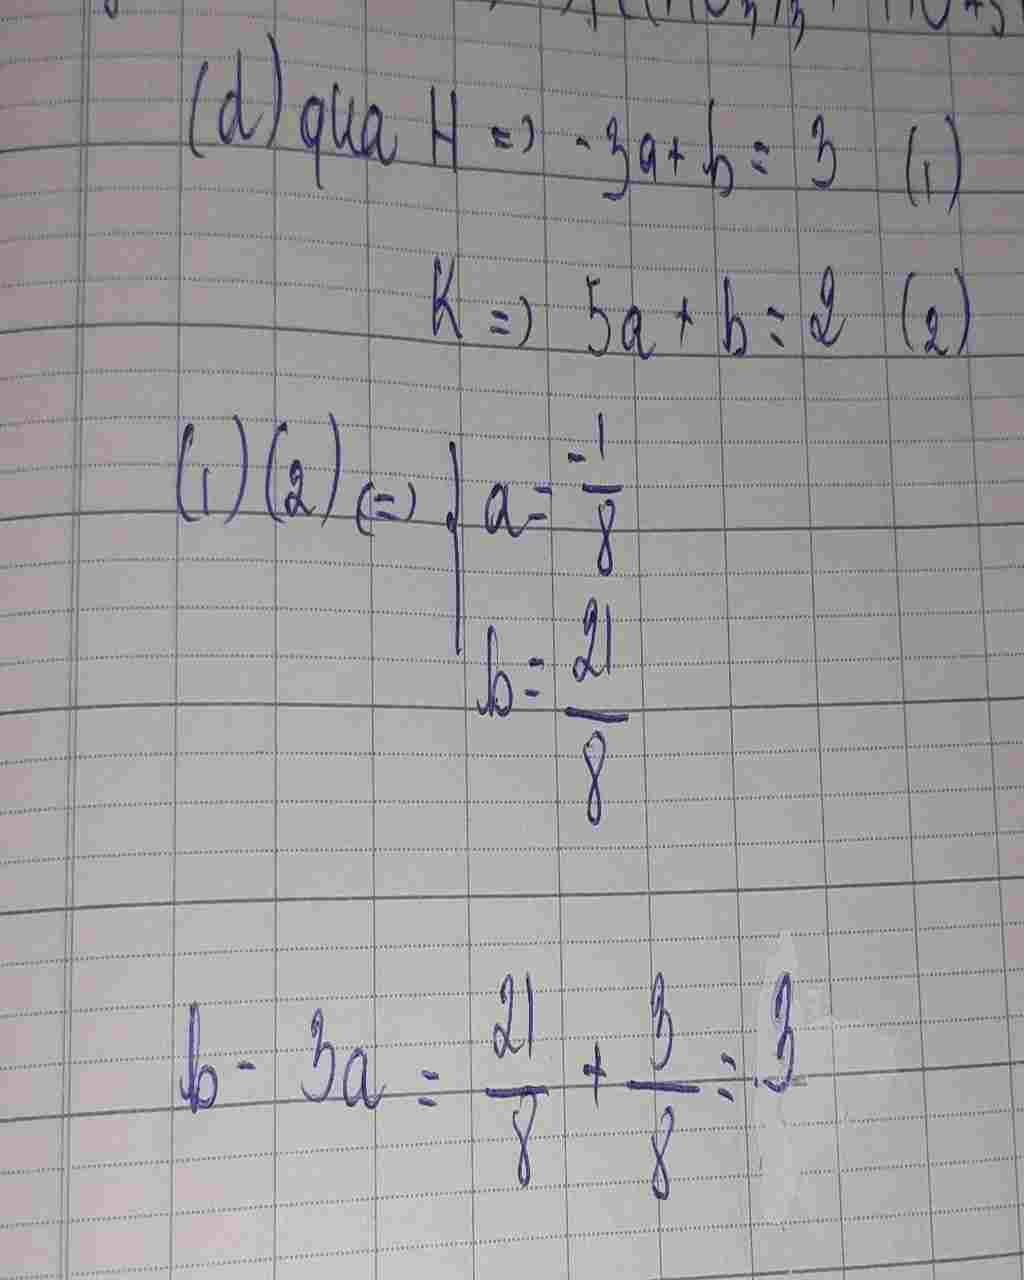 (d) qua H => -3a + b = 3 (1)
K => 5a + b = 2 (2)
(1) (2) <=> { a = -1/8
b = 21/8
b - 3a = 21/8 + 3/8 = 3